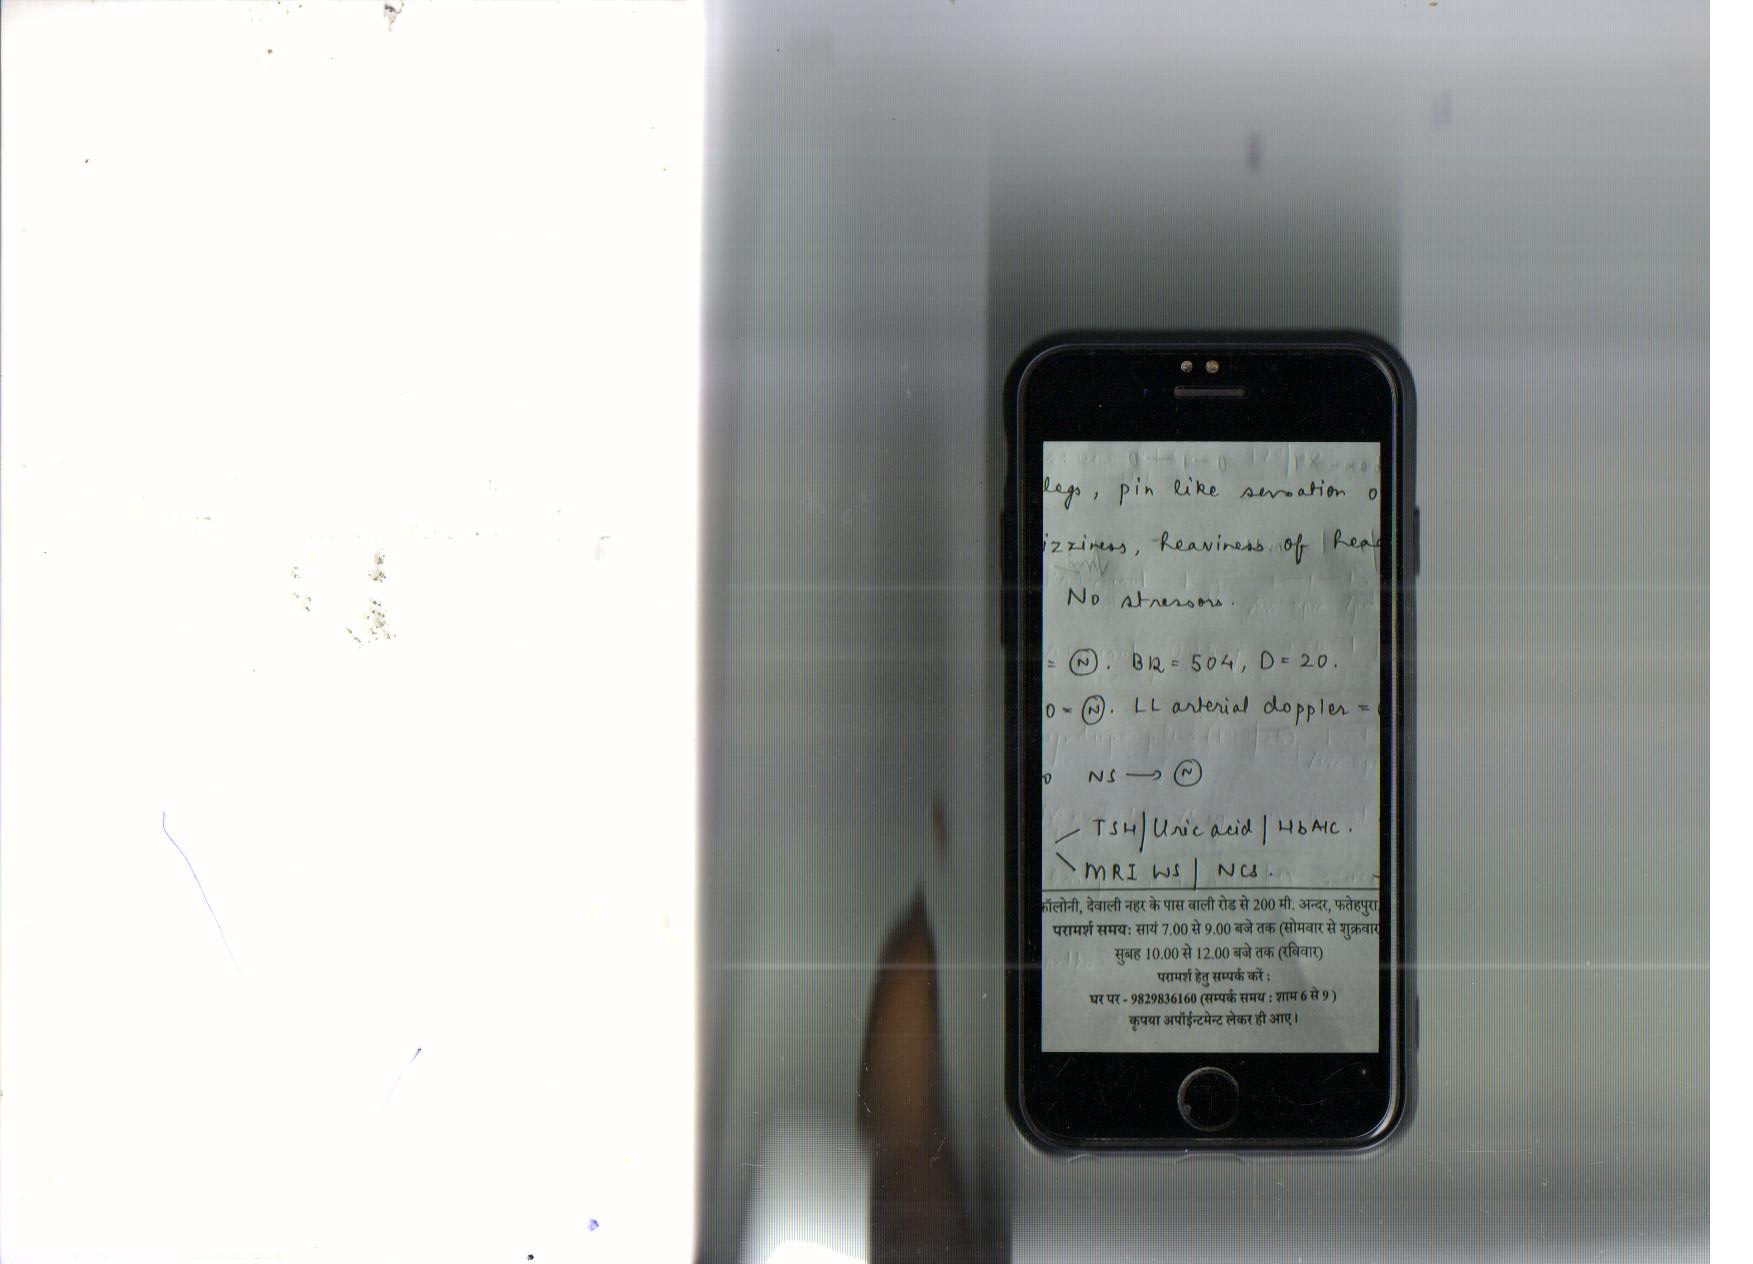 legs, pin like sensation o
izziness, heaviness of head
No stressors.
= Ⓝ. B12 = 504, D = 20.
0 = Ⓝ. LL arterial doppler =
NS → Ⓝ
TSH | Uric acid | HbA1c.
MRI WS | NCS.
कॉलोनी, देवाली नहर के पास वाली रोड से 200 मी. अन्दर, फतेहपुरा
परामर्श समय: सायं 7.00 से 9.00 बजे तक (सोमवार से शुक्रवार
सुबह 10.00 से 12.00 बजे तक (रविवार)
परामर्श हेतु सम्पर्क करें :
घर पर - 9829836160 (सम्पर्क समय : शाम 6 से 9 )
कृपया अपॉईन्टमेन्ट लेकर ही आए।